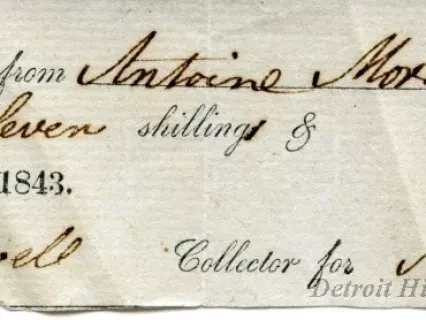 from Antoine Mor
leven shillings &
1843.
well Collector for
Detroit Hi